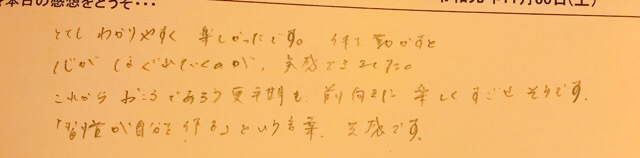 本日の感想をどうぞ・・・
とても わかりやすく 楽しかったです。 体を動かすと
心が ほぐれていくのが、実感できました。
これから おこるであろう更年期も、前向きに 楽しく すごせそうです。
「習慣が自分を作る」という言葉、実感です。